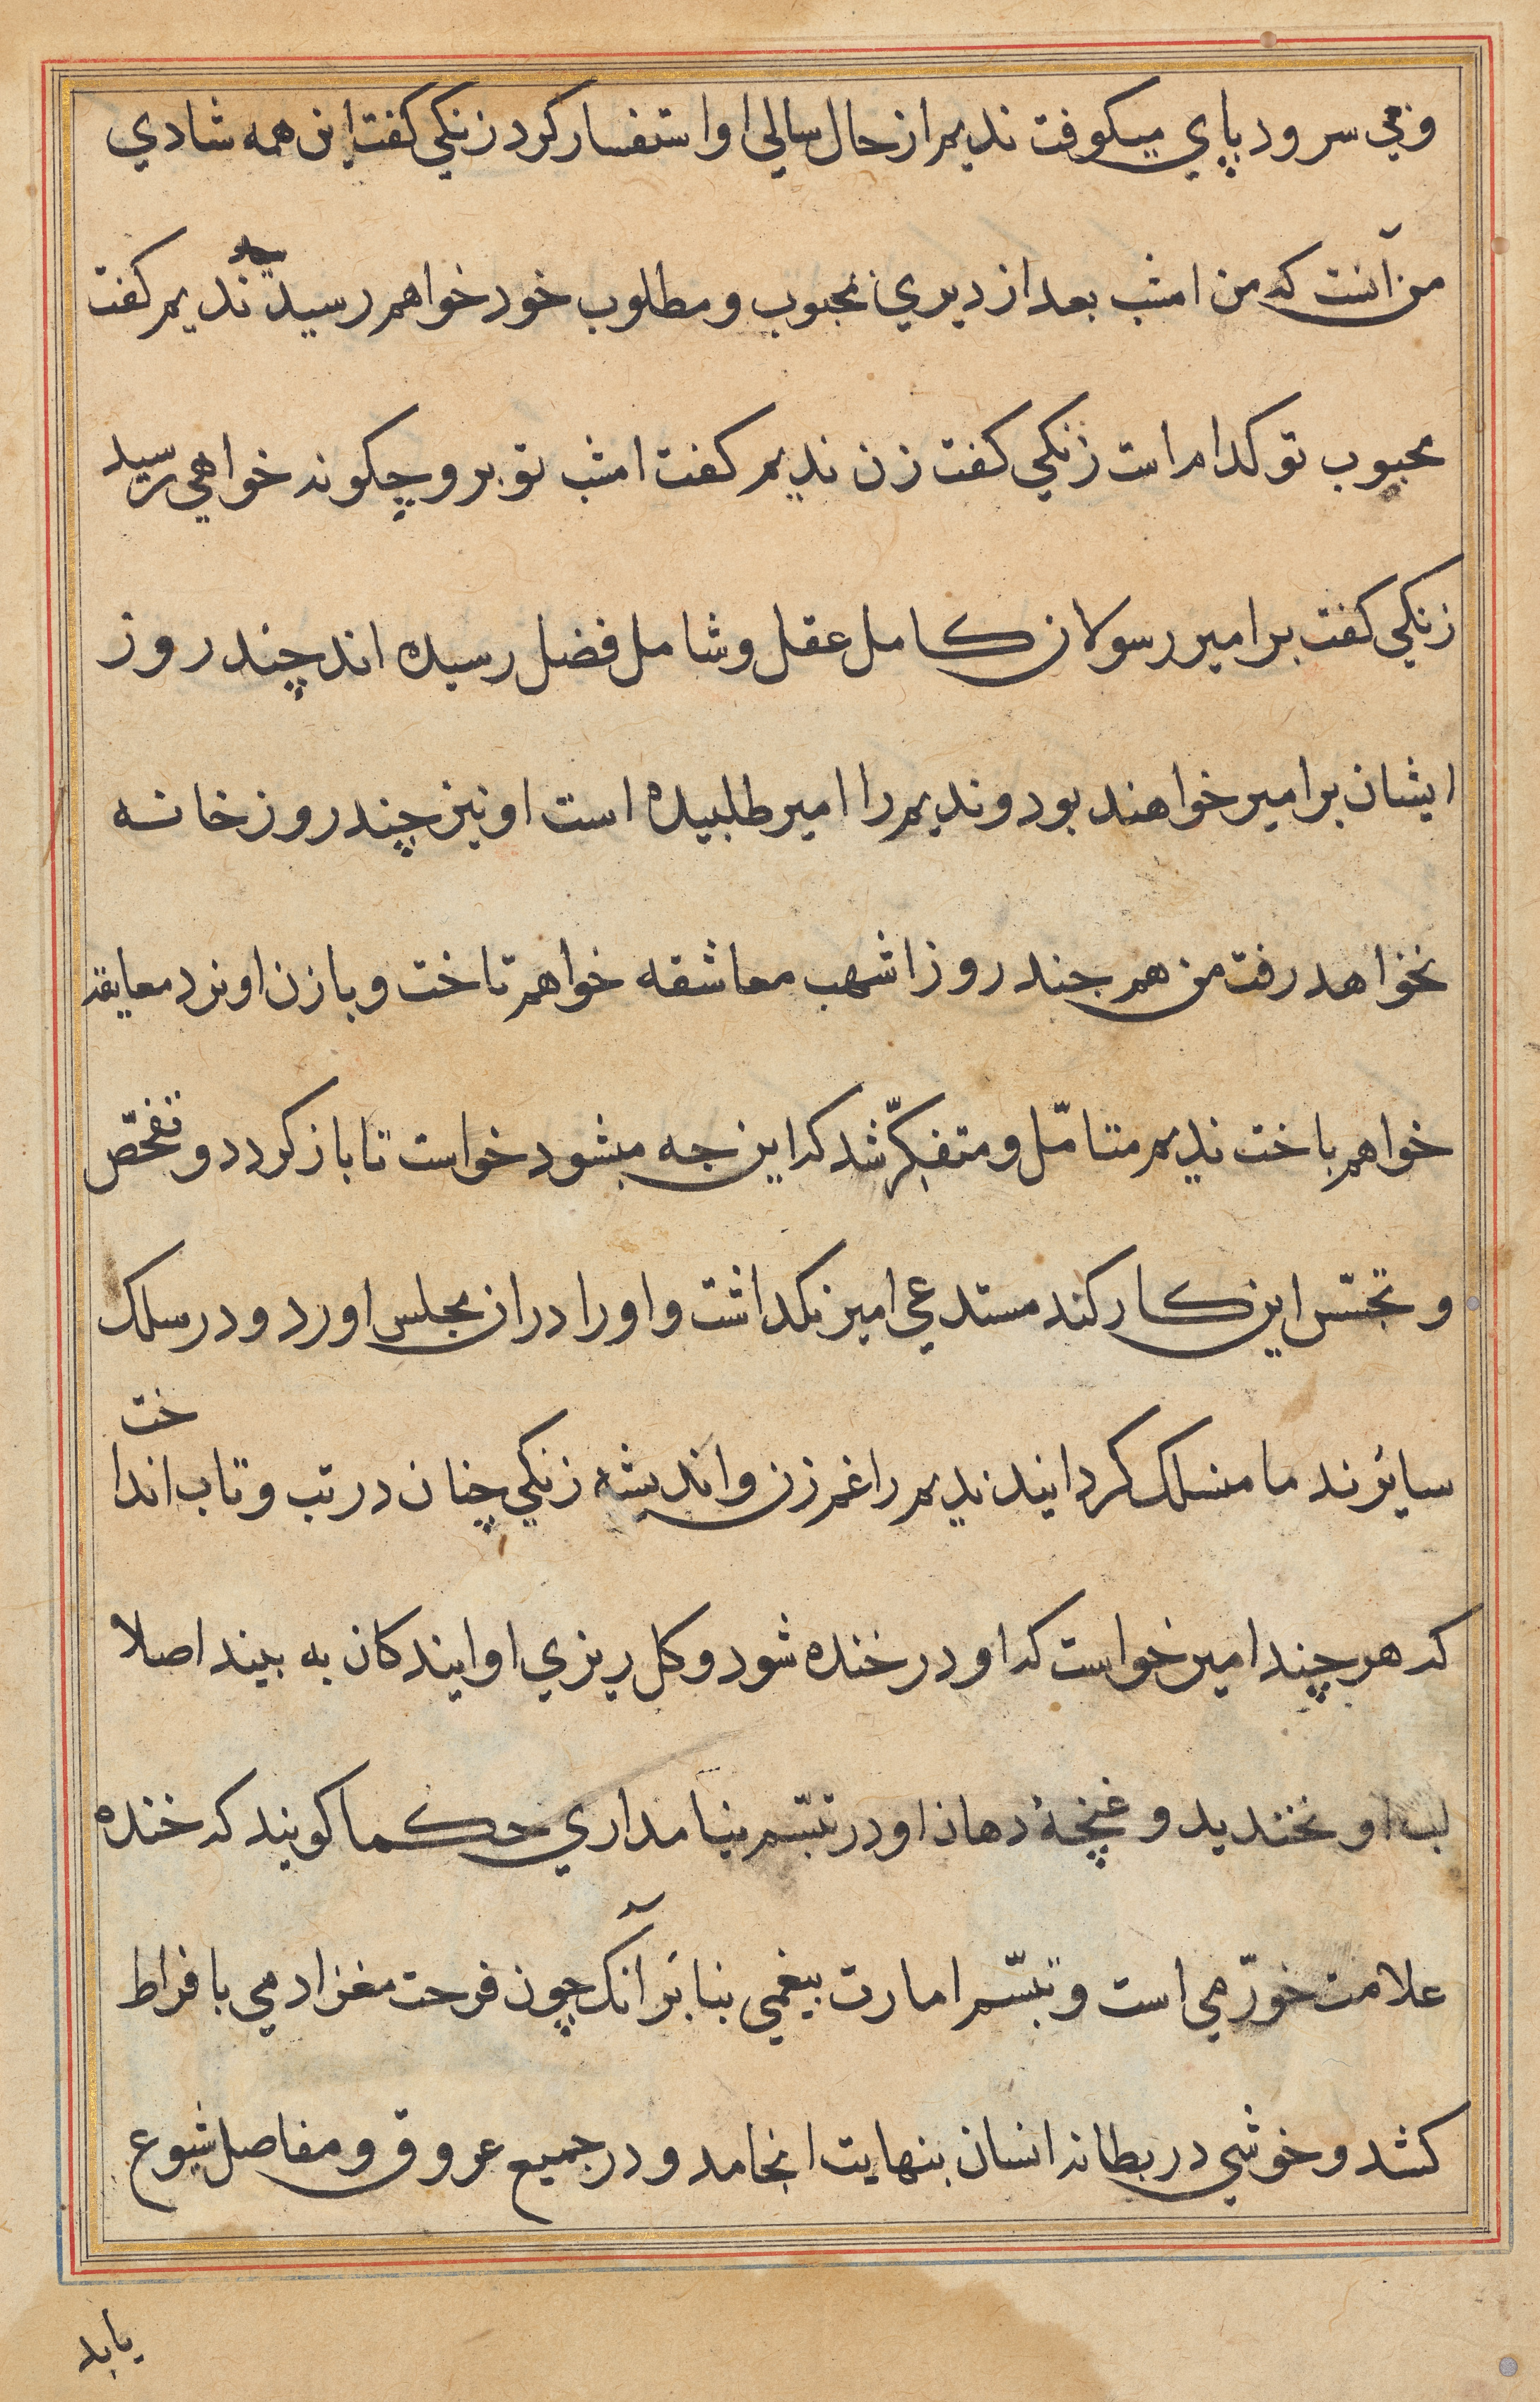 وفي سرود پاي ميكوفت نديم از حال سالي او استفسار كرد زنكي كفت اين همه شادي
من آنست كه من امشب بعد از ديري بمحبوب و مطلوب خود خواهم رسيد نديم كفت
محبوب تو كدام است زنكي كفت زن نديم كفت امشب تو برو چكونه خواهي رسيد
زنكي كفت بر امير رسولان كامل عقل و شامل فضل رسيده اند چند روز
ايشان بر امير خواهند بود و نديم را امير طلبيده است او نيز چند روز خانه
نخواهد رفت من هم چند روز اشهب معاشقه خواهم تاخت و با زن او نرد معانقه
خواهم باخت نديم متامّل و متفكّر شد كه اين جه ميشود خواست تا باز كردد و تفحّص
و تجسّس اين كار كند مستدعي امير نكداشت و او را در ان مجلس اورد و در سلك
ساير ندما منسلك كردانيد نديم را غم زن و انديشه زنكي چنان در تب و تاب انداخت
كه هر چند امير خواست كه او در خنده شود و كل ريزي او ايندكان به بيند اصلا
لب او نخنديد و غنچهٔ دهان او در تبسّم نيامد اري حكما كويند كه خنده
علامت خورّمي است و تبسّم امارت بيغمي بنا بر آنك چون فرحت مغز ادمي با فراط
كشد و خوشي در بطانه انسان بنهايت انجامد و در جميع عروق و مفاصل شيوع
يابد